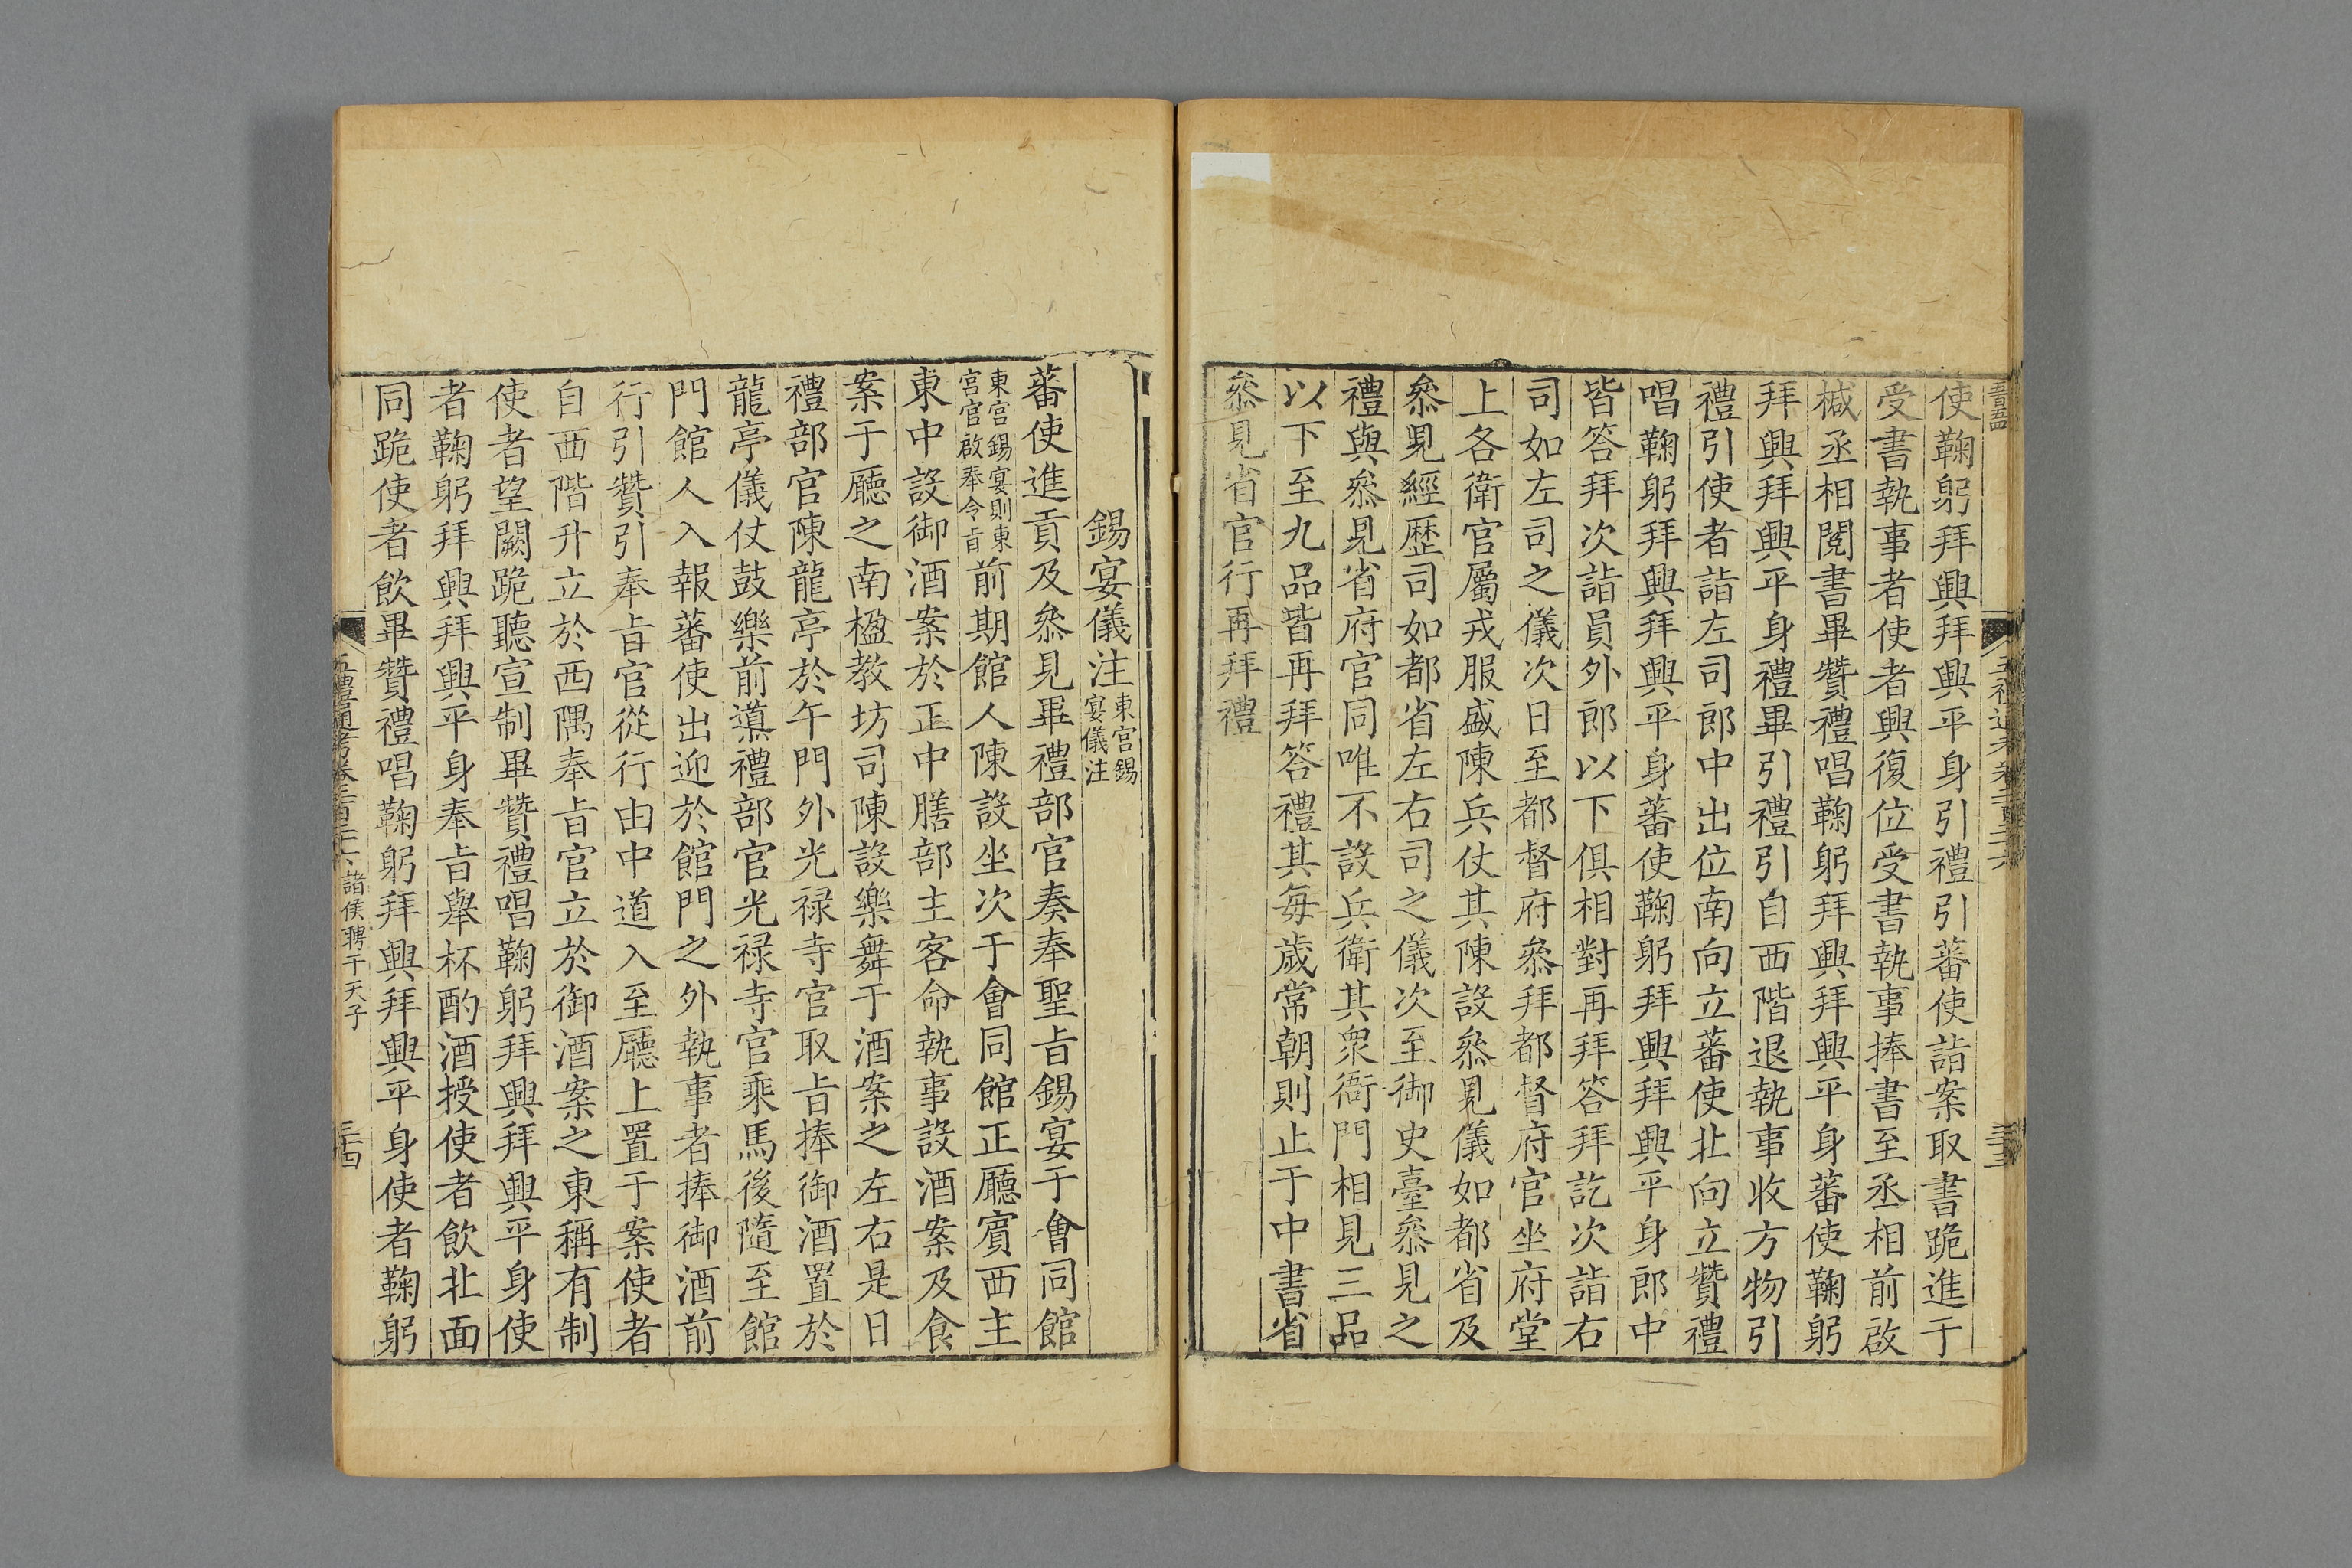 使鞠躬拜興拜興平身引禮引蕃使詣案取書跪進于
受書執事者使者興復位受書執事捧書至丞相前啟
椷丞相閱書畢贊禮唱鞠躬拜興拜興平身蕃使鞠躬
拜興拜興平身禮畢引禮引自西階退執事收方物引
禮引使者詣左司郎中出位南向立蕃使北向立贊禮
唱鞠躬拜興拜興平身蕃使鞠躬拜興拜興平身郎中
皆答拜次詣員外郎以下俱相對再拜答拜訖次詣右
司如左司之儀次日至都督府叅拜都督府官坐府堂
上各衛官屬戎服盛陳兵仗其陳設叅見儀如都省及
叅見經歷司如都省左右司之儀次至御史臺叅見之
禮與叅見省府官同唯不設兵衛其衆衙門相見三品
以下至九品皆再拜答禮其每歲常朝則止于中書省
叅見省官行再拜禮
錫宴儀注東宮錫宴儀注
蕃使進貢及叅見畢禮部官奏奉聖旨錫宴于會同館
東宮錫宴則東宮官啟奉令旨前期館人陳設坐次于會同館正廳賓西主
東中設御酒案於正中膳部主客命執事設酒案及食
案于廳之南楹教坊司陳設樂舞于酒案之左右是日
禮部官陳龍亭於午門外光禄寺官取旨捧御酒置於
龍亭儀仗鼓樂前導禮部官光禄寺官乘馬後隨至館
門館人入報蕃使出迎於館門之外執事者捧御酒前
行引贊引奉旨官從行由中道入至廳上置于案使者
自西階升立於西隅奉旨官立於御酒案之東稱有制
使者望闕跪聽宣制畢贊禮唱鞠躬拜興拜興平身使
者鞠躬拜興拜興平身奉旨舉杯酌酒授使者飲北面
同跪使者飲畢贊禮唱鞠躬拜興拜興平身使者鞠躬
五禮通考卷二百二十六 諸侯聘于天子 三十四